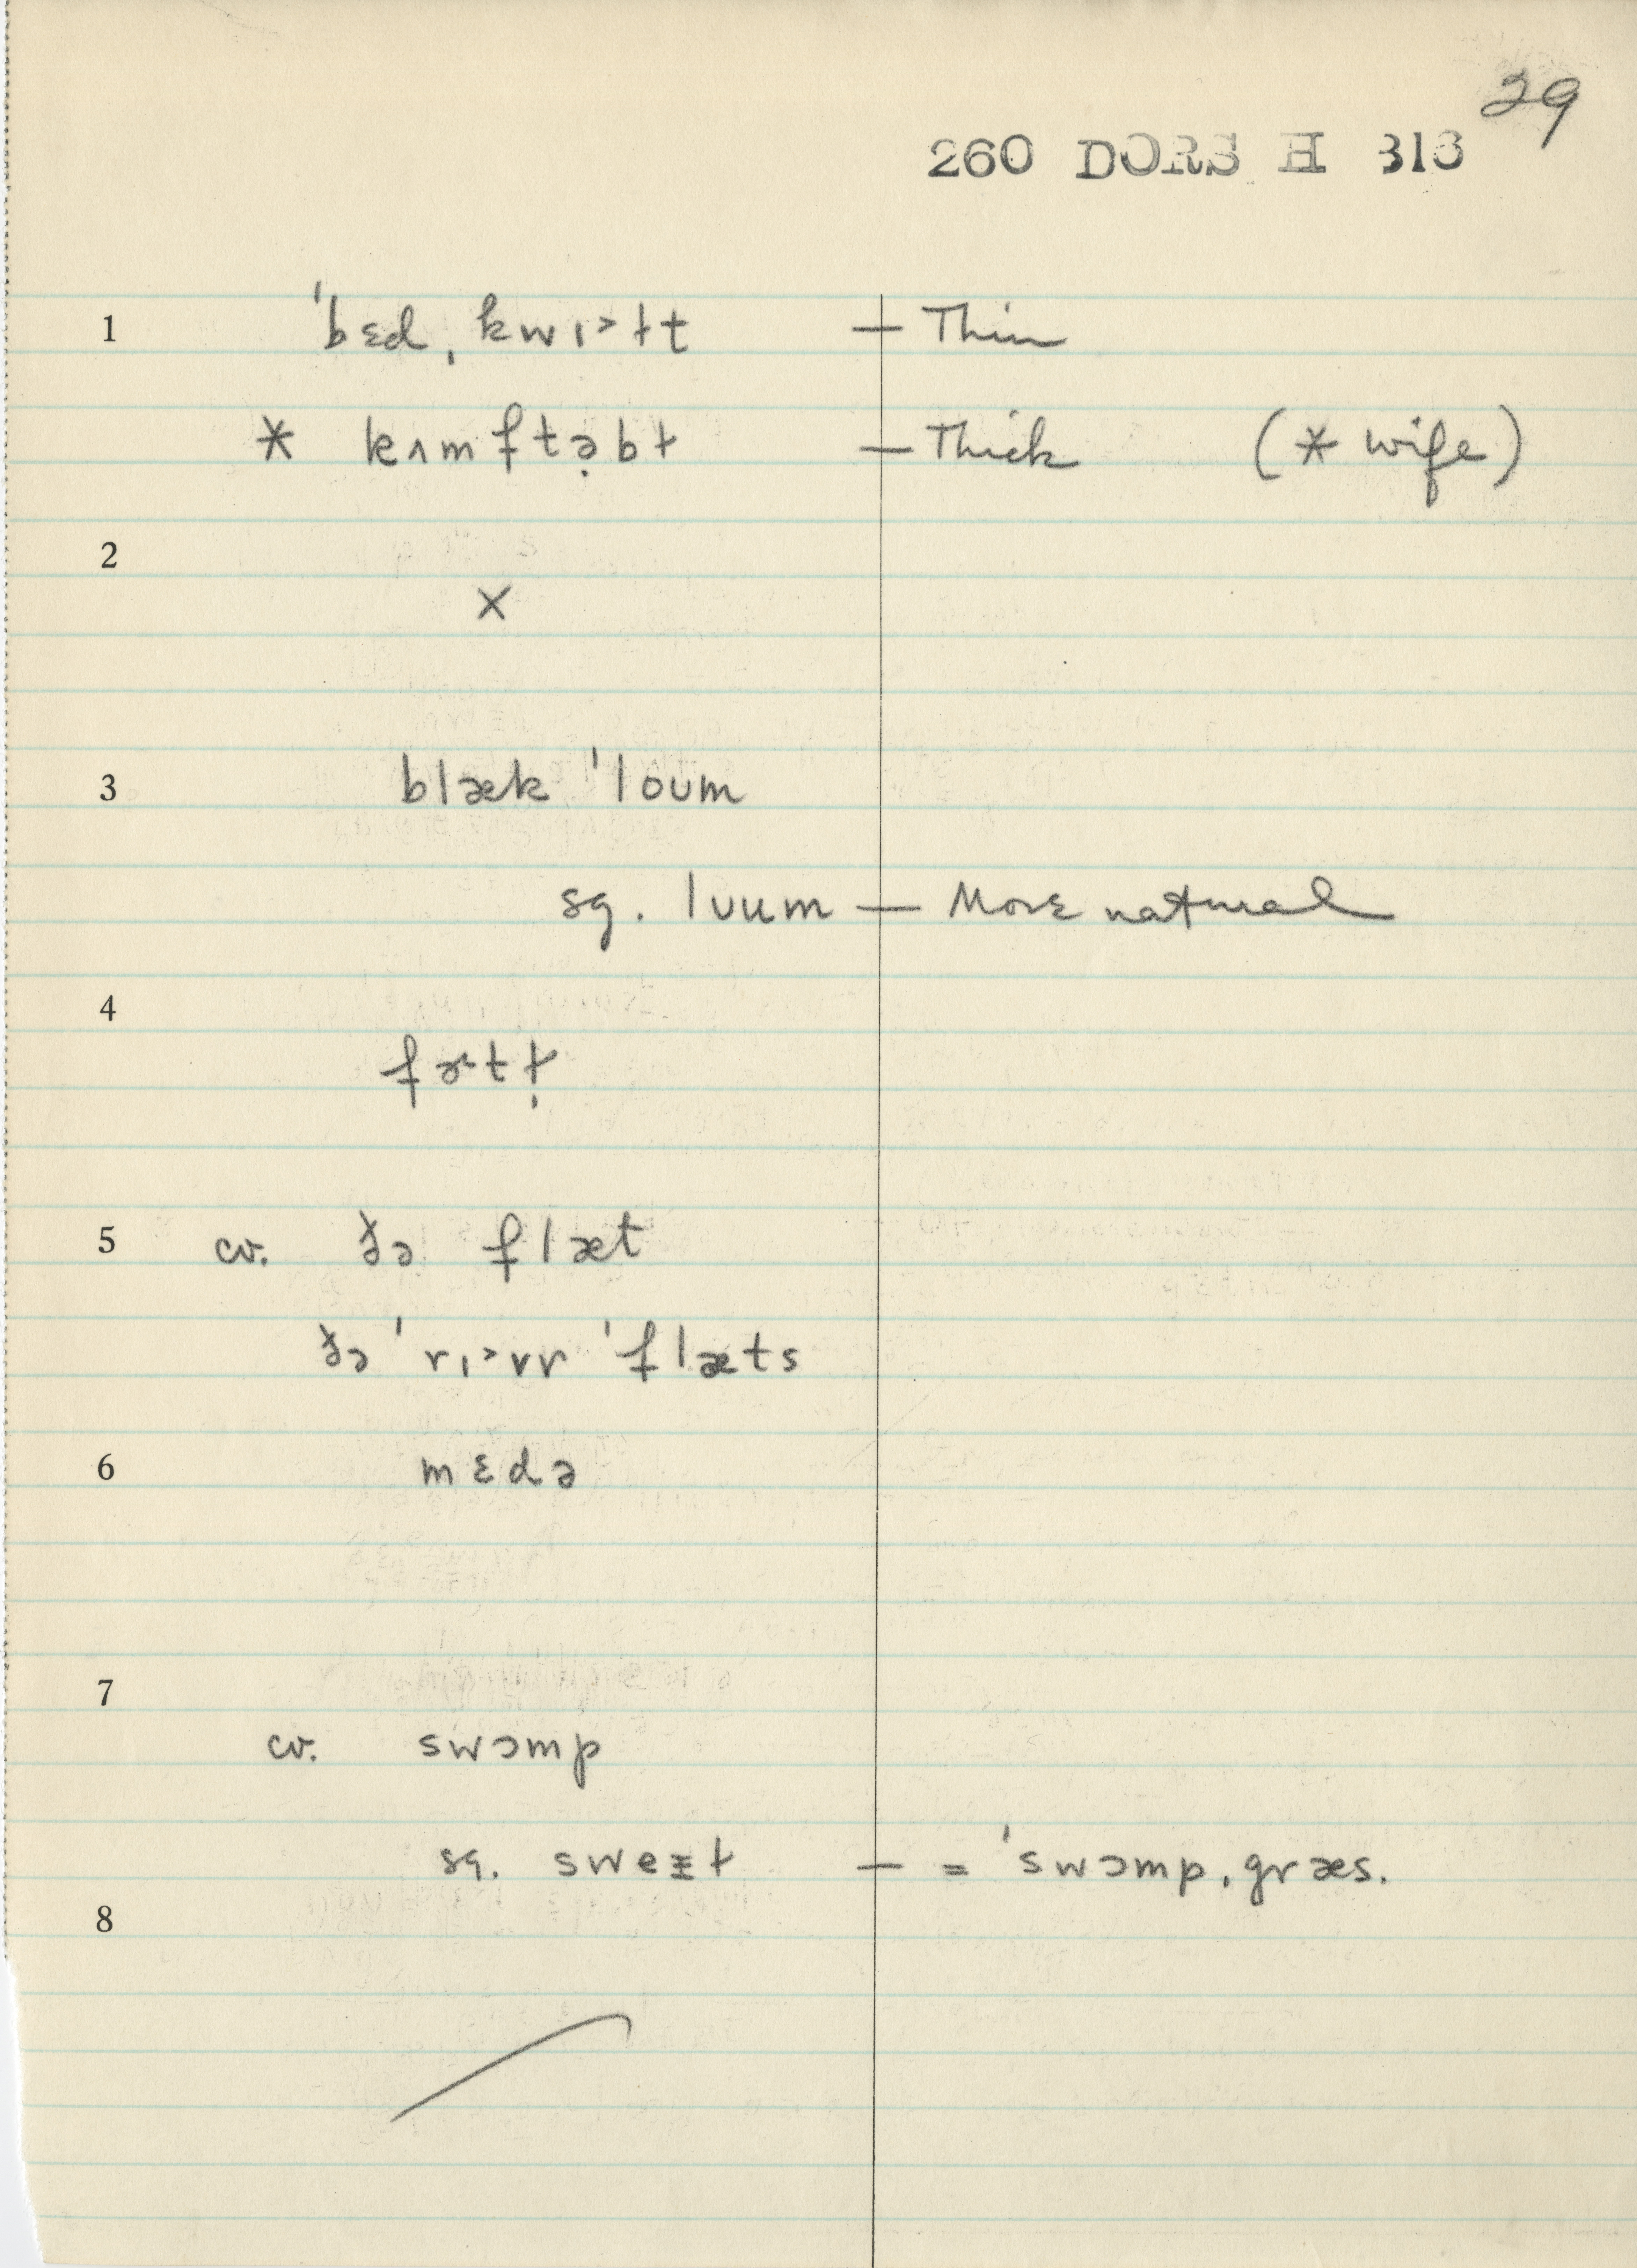 29
260 DORS H 313
1 ˈbɛd ˌkwɪ˃ɫt — Thin
* kʌmftə̣bɫ — Thick (* wife)
2
×
3 blæk ˈloʊm
sg. lʊum — More natural
4
fɚtɫ̩
5 cv. ðə flæt
ðə ˈrɪ˃vr ˈflæts
6 mɛdə
7
cv. swɔmp
sg. sweɪɫ — = ˈswɔmp ˌgræs.
8